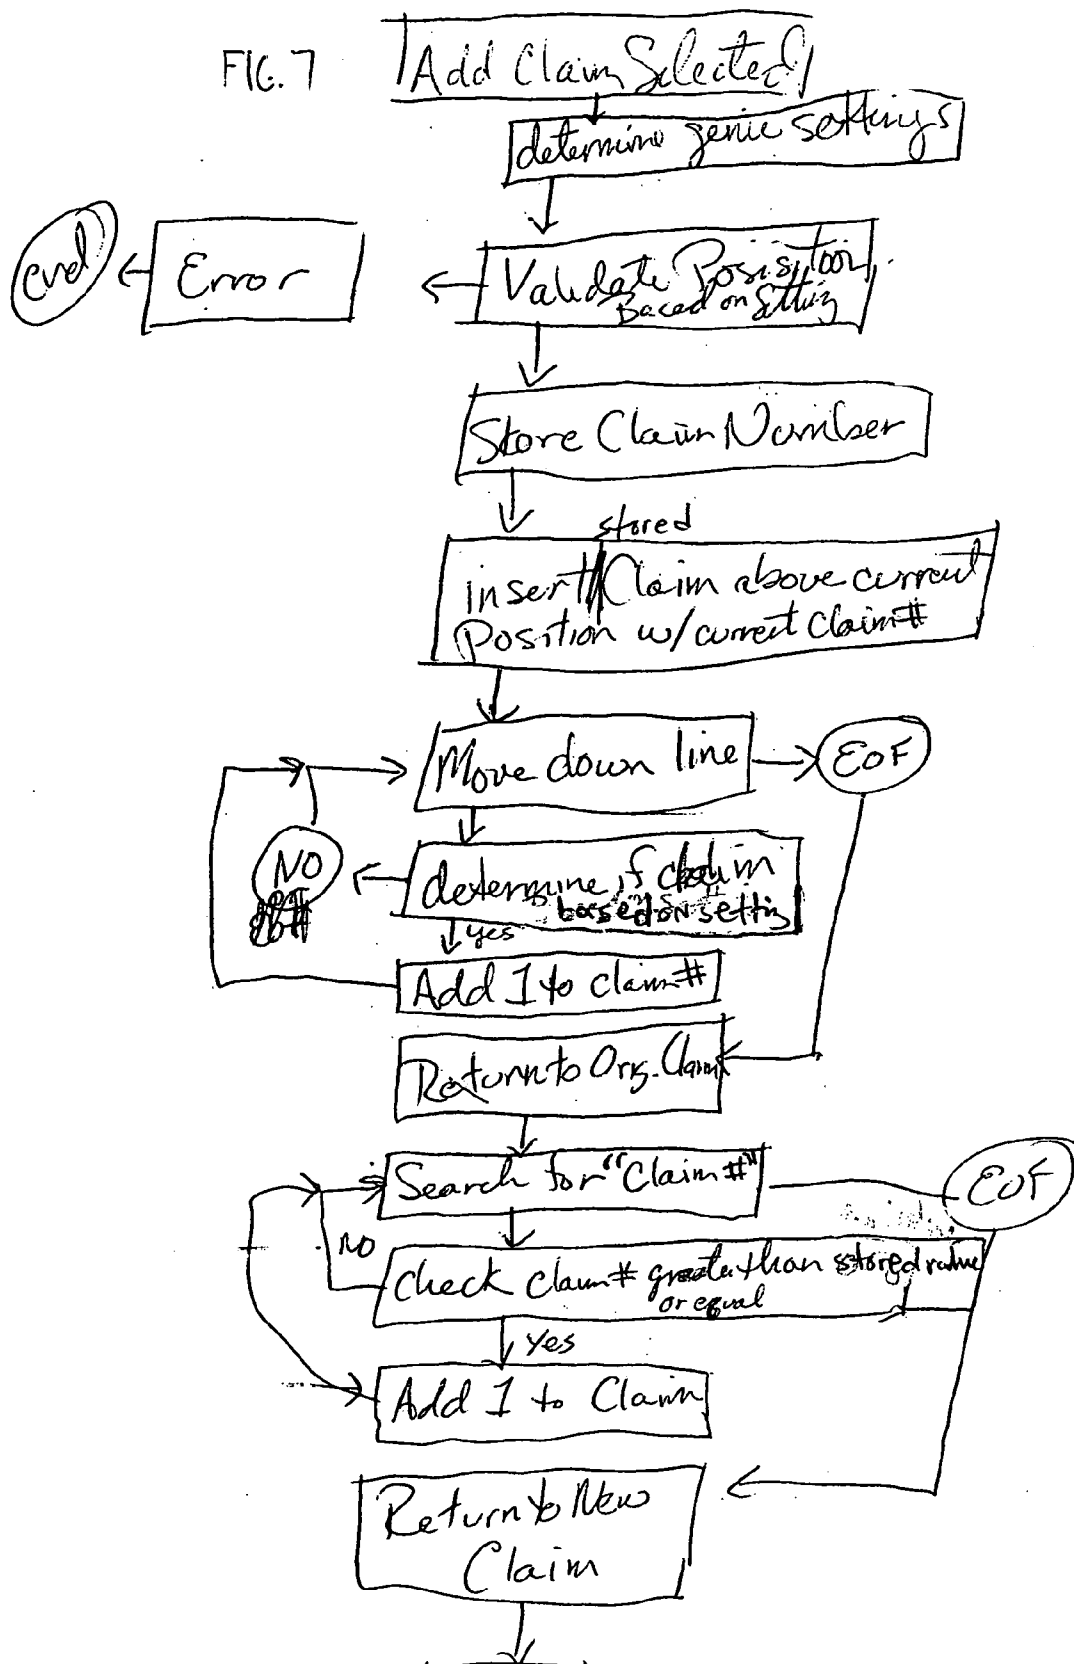 FIG. 7
Add Claim Selected
determine genie settings
Validate Posisitoon
Based on Setting
Error
end
Store Claim Number
stored
insert Claim above current
Position w/current Claim#
Move down line
EOF
NO
determine if claim
based on settig
yes
Add 1 to claim#
Return to Orig. Claim
Search for "Claim #"
EOF
NO
Check claim# greater than stored value
or equal
Yes
Add 1 to Claim
Return to New
Claim